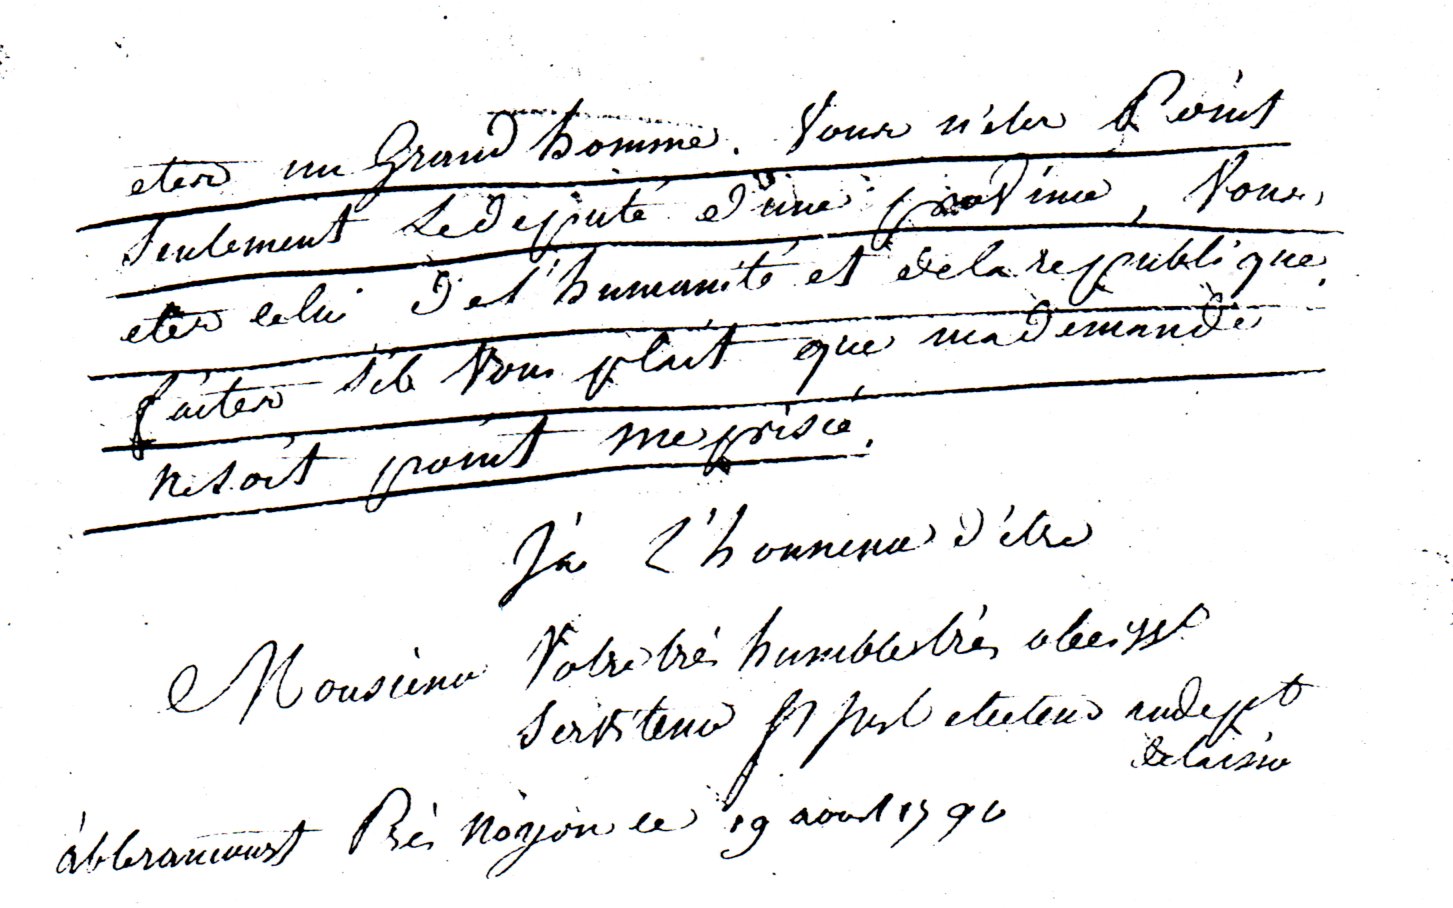 etes un Grand homme. Vous n'etes Point
seulement le deputé d'une province, Vous
etes celui de l'humanité et de la republique.
faites s'il Vous plait que ma demande
ne soit point meprisée.
J'ai l'honneur d'être
Monsieur Votre très humble très obeisst
serviteur st just electeur au dept
de laisne
à blerancourt Près Noyon le 19 aout 1790